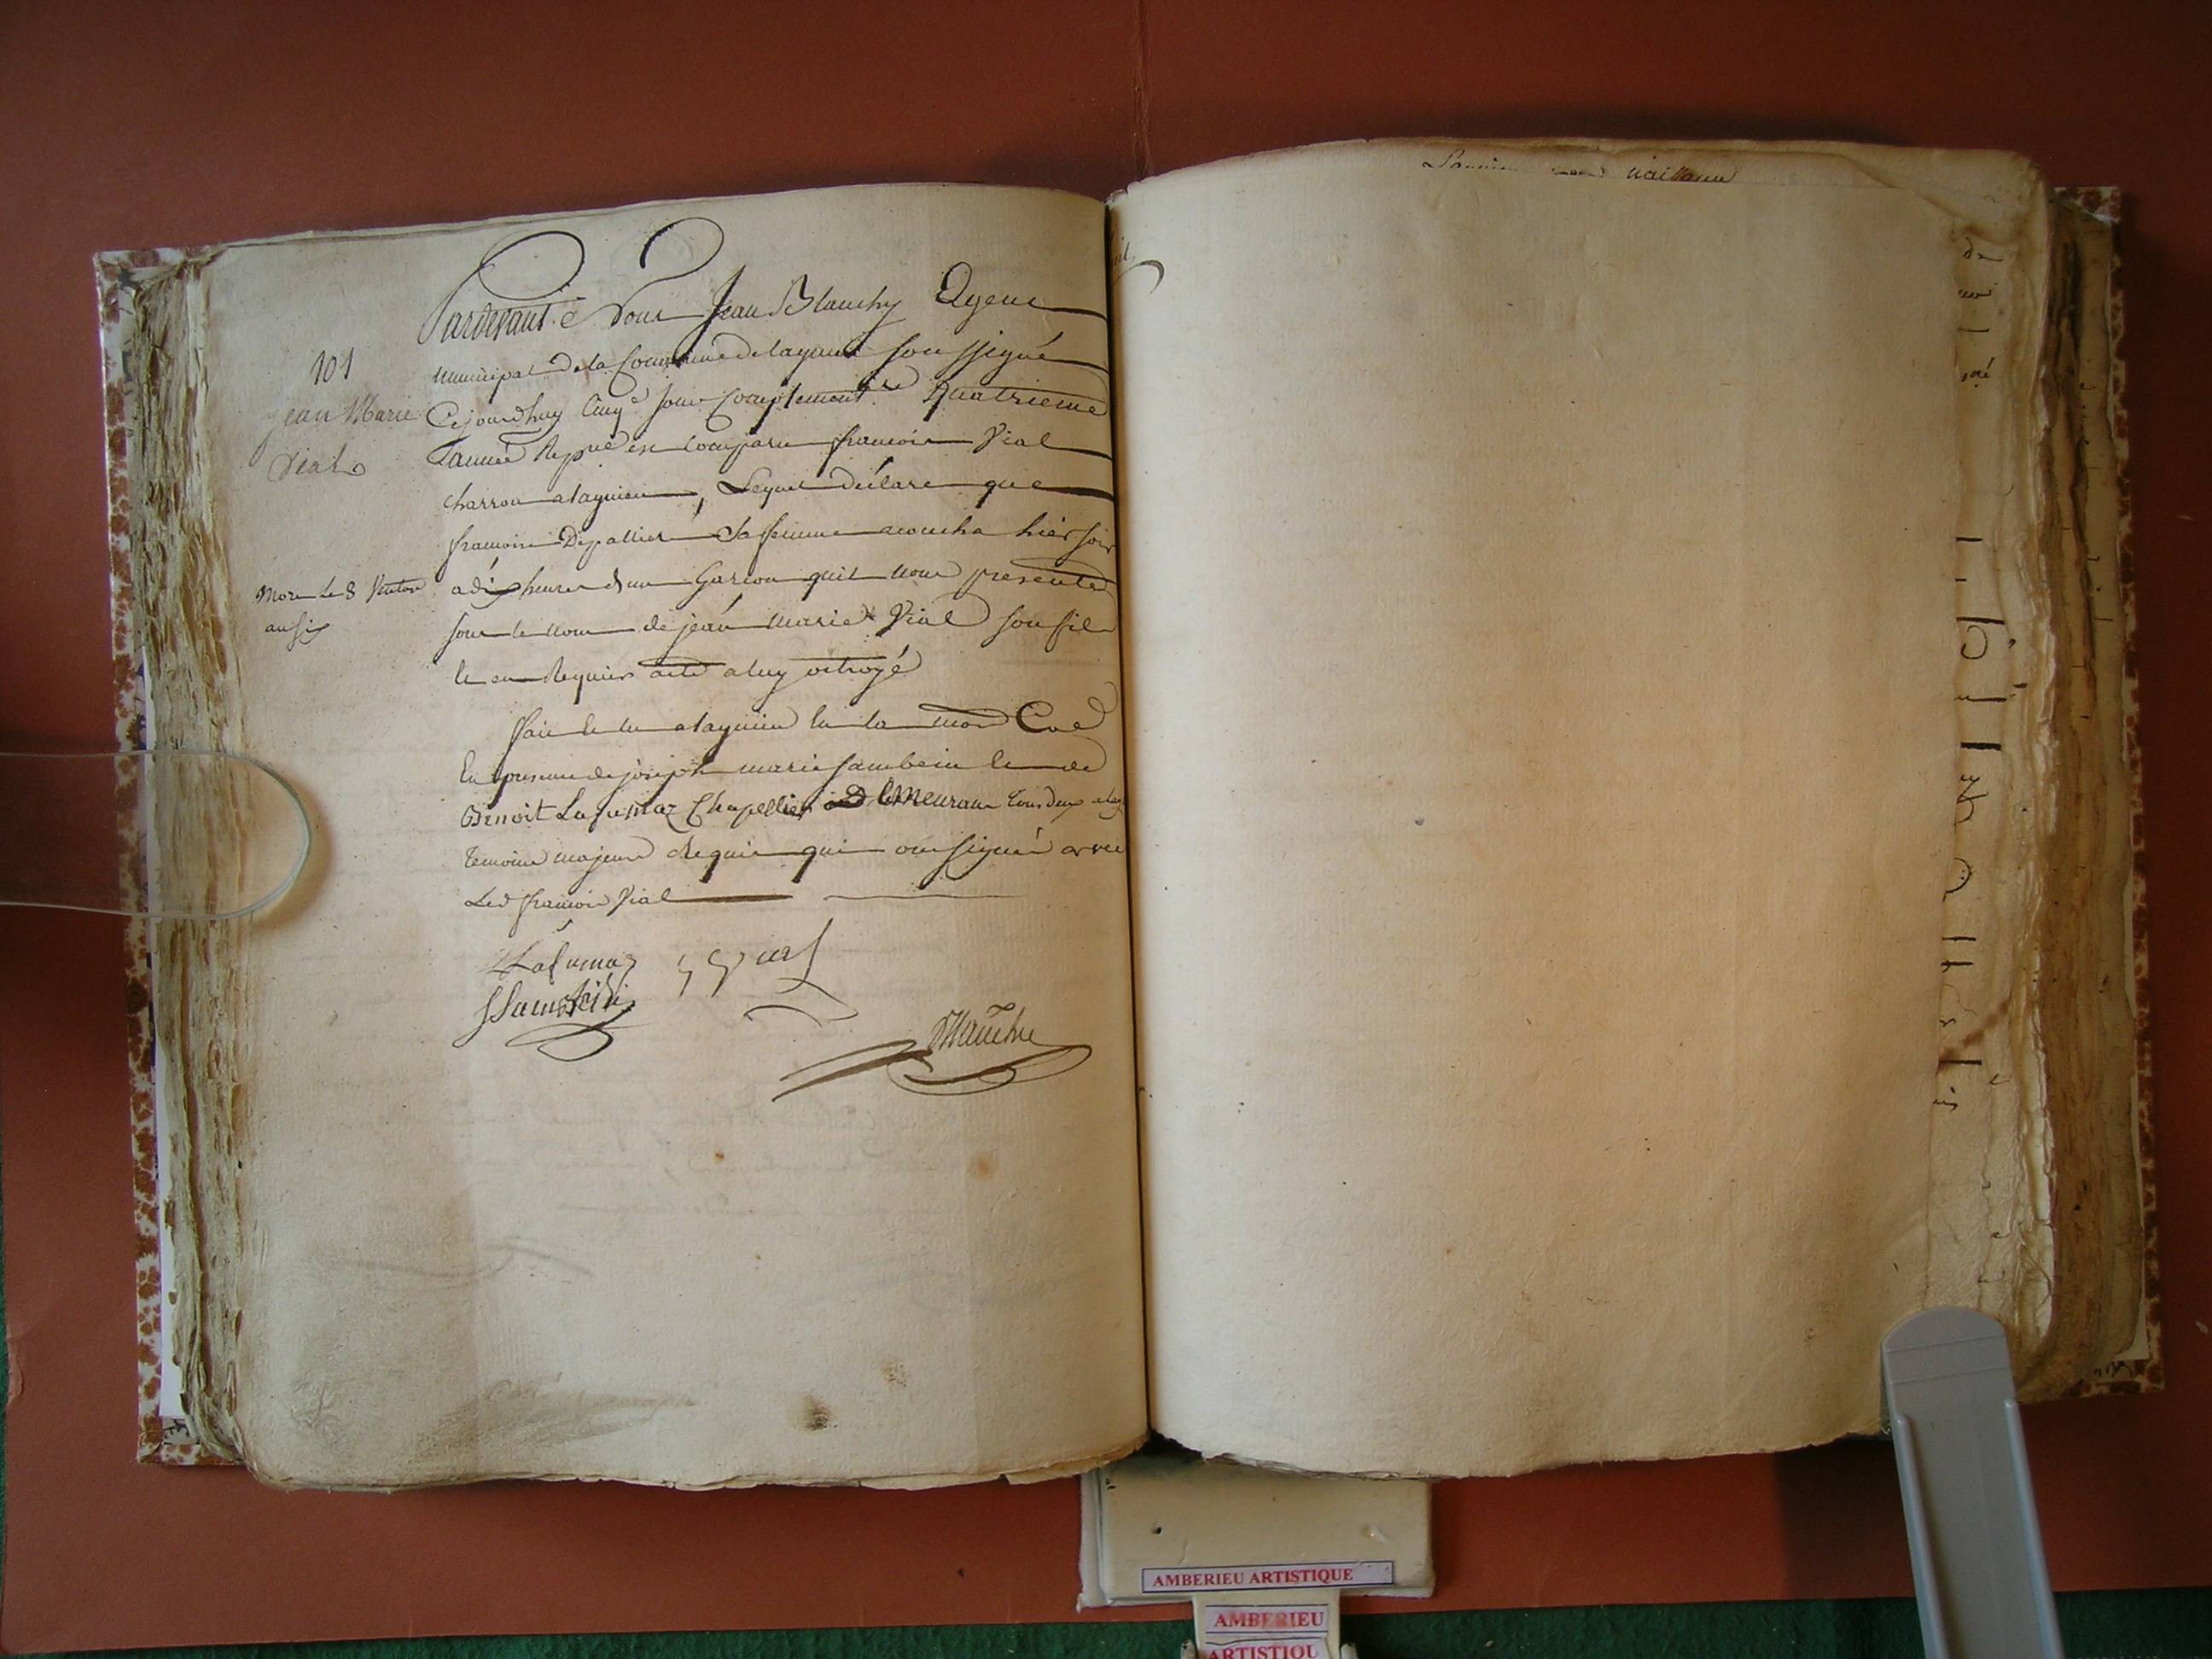 101
Jean Marie
Vial
Mort le 8 Ventose
an six
Pardevant Nous Jean Blanchy Agent
municipal de la Commune de lagnieu soussigné
Cejourdhuy Cinqe jour Complementre Quatrieme
année Repue est comparu francois Vial
charron a lagnieu, Lequel déclare que
francoise Depallier Sa femme acoucha hier soir
a dix heures dun Garcon quil nous presente
sous le nom de jean marie Vial son fils
et en Requier acte a luy octroyé
Fait et lu a lagnieu en la mon Cne
En presence de joseph marie et de
Benoit Lafumaz Chapellier demeurant tous deux a lag
temoins majeurs Requis qui ont signés avec
Led francois Vial
Lafumaz
Vial
Blanchy
AMBERIEU ARTISTIQUE
AMBERIEU
ARTISTIQU